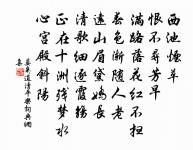 西池煙草
恨不尋芳早
滿路落花紅不扫
春色漸隨人老
遠山眉黛嬌長
清歌細逐霞觴
正在十洲殘夢水
心宮殿斜陽